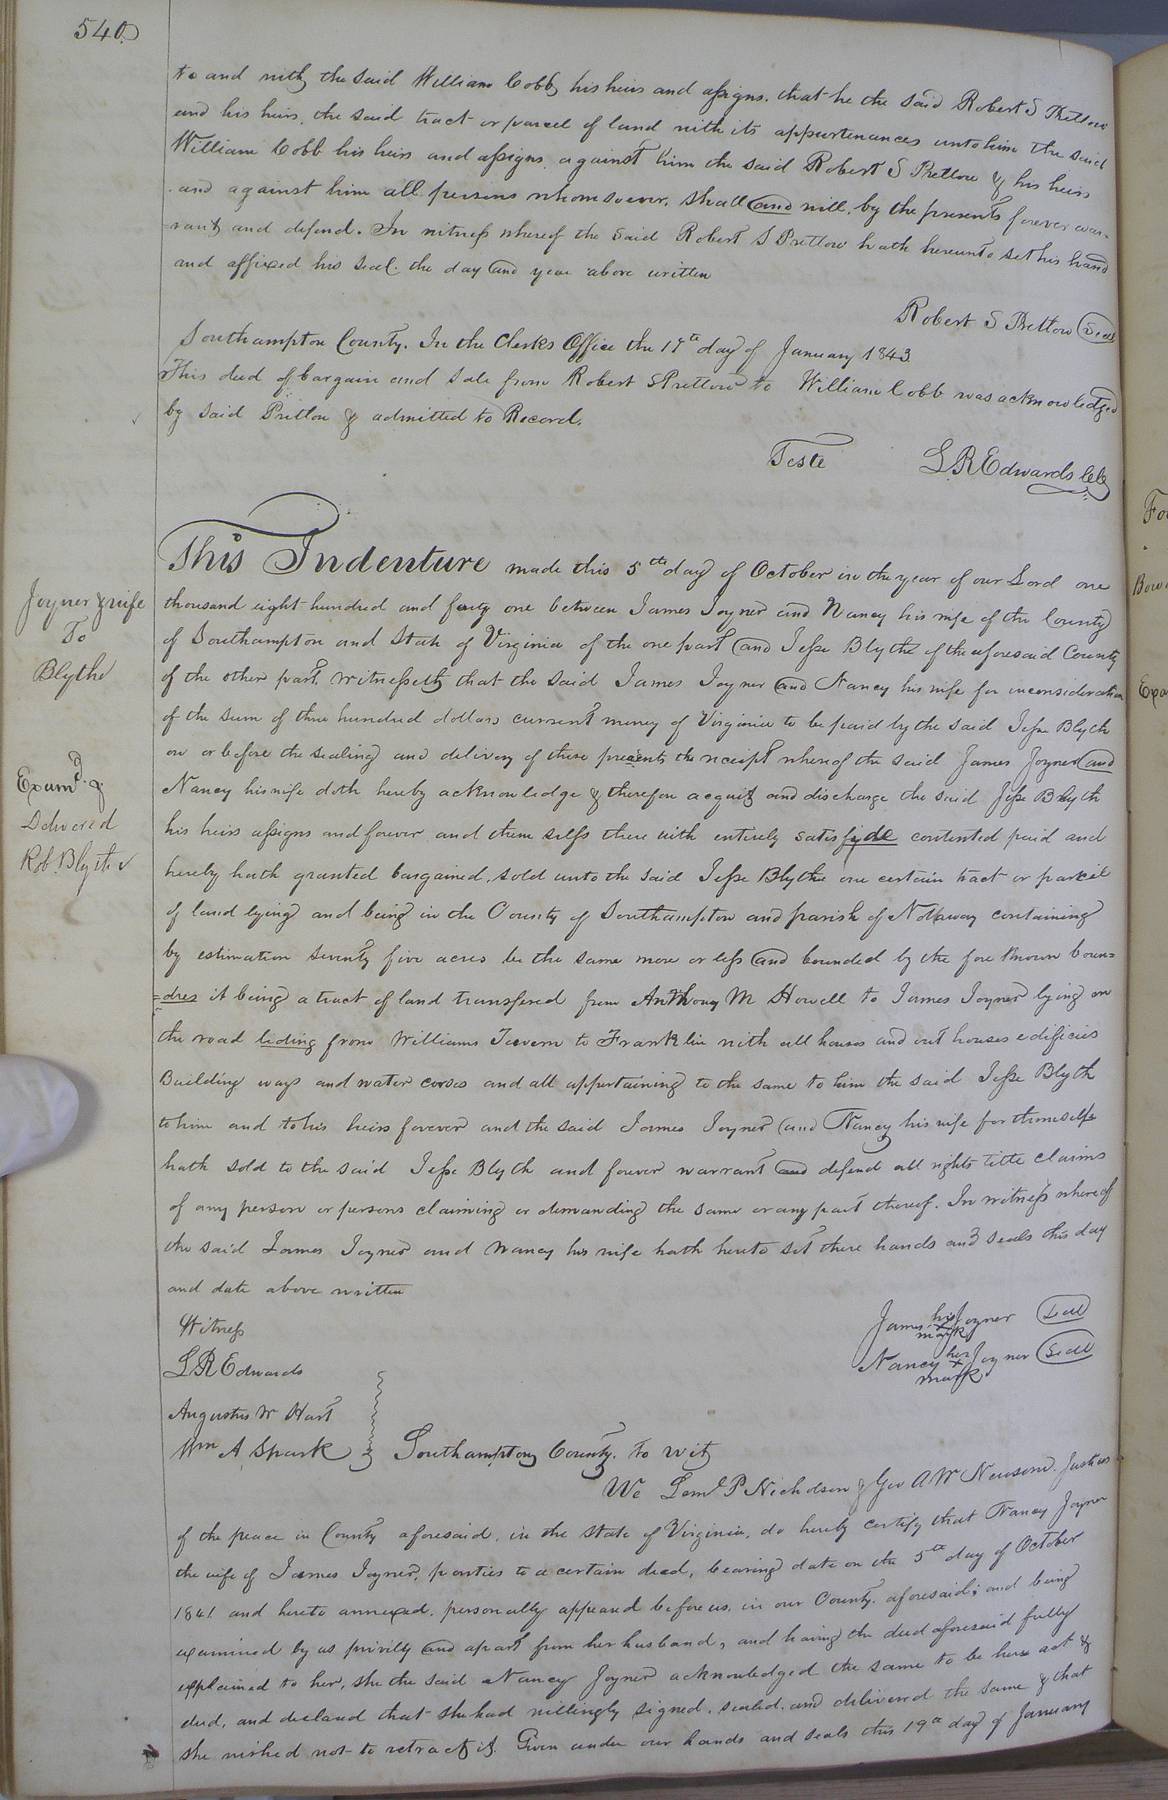 540
to and with the said William Cobb, his heirs and assigns, that he the said Robert S Pretlow
and his heirs, the said tract or parcel of land with its appurtenances unto him the said
William Cobb his heirs and assigns against him the said Robert S Pretlow & his heirs
and against him all persons whomsoever, shall and will, by the presents forever war-
rant and defend. In witness whereof the said Robert S Pretlow hath hereunto set his hand
and affixed his seal. the day and year above written
Robert S Pretlow Seal
Southampton County. In the Clerks Office the 19th day of January 1843
This deed of bargain and sale from Robert S Pretlow to William Cobb was acknowledged
by said Pretlow & admitted to Record.
Teste L R Edwards Clk
Joyner & wife
To
Blythe
Examd. &
Delivered
Rob. Blythe
This Indenture made this 5th day of October in the year of our Lord one
thousand eight hundred and forty one between James Joyner and Nancy his wife of the County
of Southampton and State of Virginia of the one part and Jesse Blythe of the aforesaid County
of the other part, witnesseth that the said James Joyner and Nancy his wife for inconsideration
of the sum of three hundred dollars current money of Virginia to be paid by the said Jesse Blyth
on or before the sealing and delivery of these presents the receipt whereof the said James Joyner and
Nancy his wife doth hereby acknowledge & therefore acquit and discharge the said Jesse Blyth
his heirs assigns and forever and them selfs there with entirely satisfyde contented paid and
hereby hath granted bargained, sold unto the said Jesse Blythe one certain tract or parcel
of land lying and being in the County of Southampton and parish of Nottoway containing
by estimation seventy five acres be the same more or less and bounded by the fore known boun=
=dres it being a tract of land transfered from Anthony M Howell to James Joyner lying on
the road liding from Williams Tavern to Franklin with all houses and out houses edificies
Building ways and water corses and all appertaining to the same to him the said Jesse Blyth
to him and to his heirs forever and the said James Joyner and Nancy his wife for themselfs
hath sold to the said Jesse Blyth and forever warrant and defend all rights title claims
of any person or persons claiming or demanding the same or any part thereof. In witness whereof
the said James Joyner and Nancy his wife hath hereto set there hands and seals this day
and date above written
Witness
James his x mark Joyner Seal
L R Edwards
Nancy her x mark Joyner Seal
Augustus W Hart
Wm A Spark Southampton County. to wit
We Leml P Nicholson & Geo A W Newsom. Justices
of the peace in County aforesaid, in the state of Virginia, do hereby certify that Nancy Joyner
the wife of James Joyner, parties to a certain deed, bearing date on the 5th day of October
1841 and hereto annexed, personally appeared before us, in our County aforesaid; and being
examined by us privily and apart from her husband, and having the deed aforesaid fully
explained to her, she the said Nancy Joyner acknowledged the same to be her act &
deed, and declared that she had willingly signed, sealed, and delivered the same & that
she wished not to retract it. Given under our hands and seals this 19th day of January